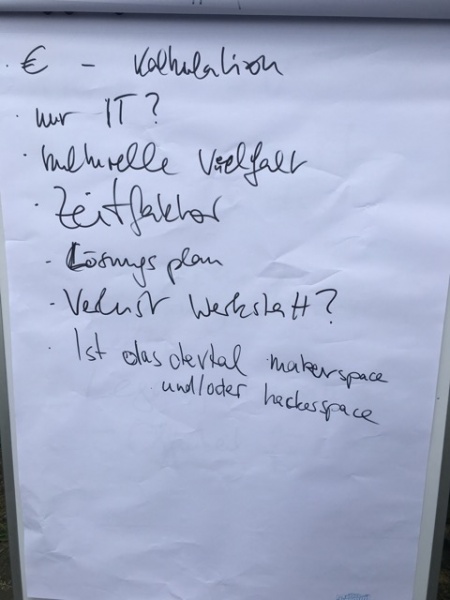 · € – Kalkulation
· nur IT?
· kulturelle Vielfalt
· Zeitfaktor
- Lösungsplan
· Verlust Werkstatt?
· Ist das dezentral makerspace
und/oder hackerspace